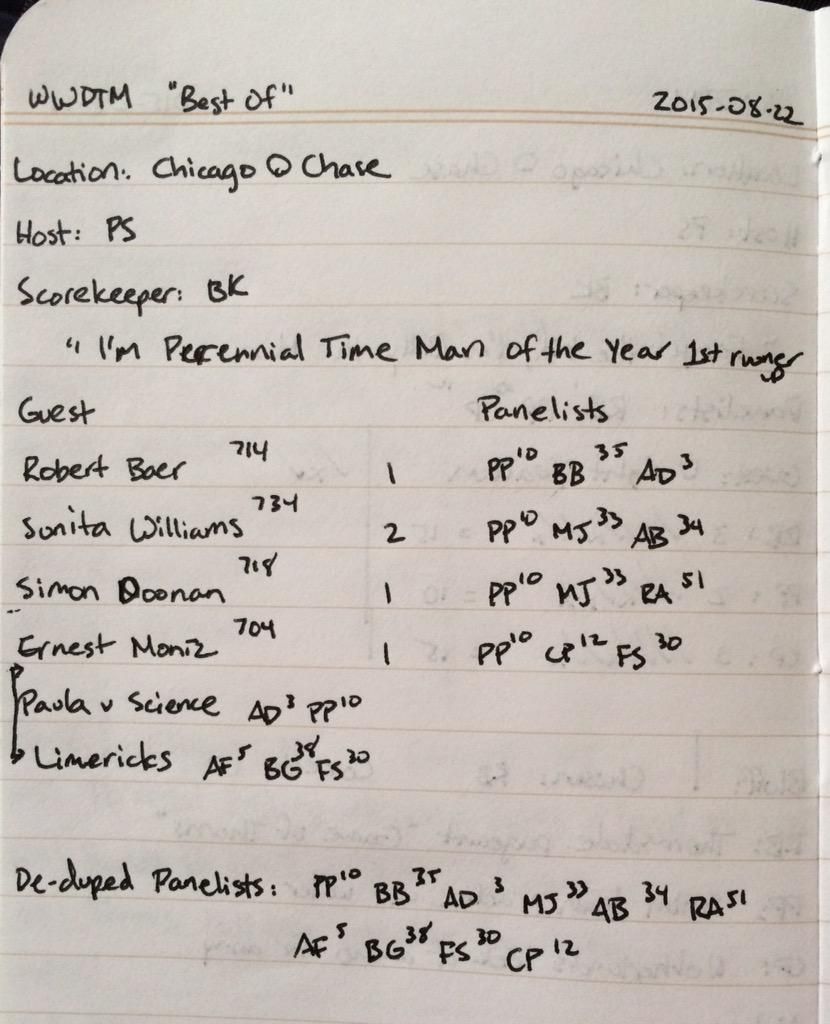 WWDTM "Best Of" 2015-08-22
Location: Chicago @ Chase
Host: PS
Scorekeeper: BK
" I'm Perennial Time Man of the Year 1st runner up
Guest Panelists
Robert Baer 714 1 PP10 BB35 AD3
Sunita Williams 734 2 PP10 MJ33 AB34
Simon Doonan 718 1 PP10 MJ33 RA51
Ernest Moniz 704 1 PP10 CP12 FS30
Paula v Science AD3 PP10
Limericks AF5 BG38 FS30
De-duped Panelists: PP10 BB35 AD3 MJ33 AB34 RA51
AF5 BG38 FS30 CP12